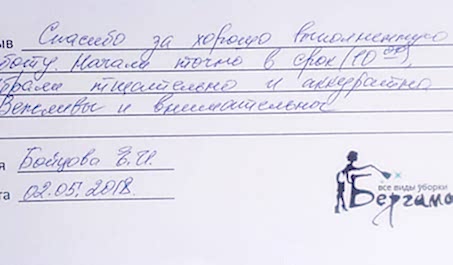 ыв Спасибо за хорошо выполненную
боту. Начали точно в срок (10 00).
брали тщательно и аккуратно
Вежливы и внимательны
я Бойцова Е.И.
та 02.05.2018.
все виды уборки
Бергамо